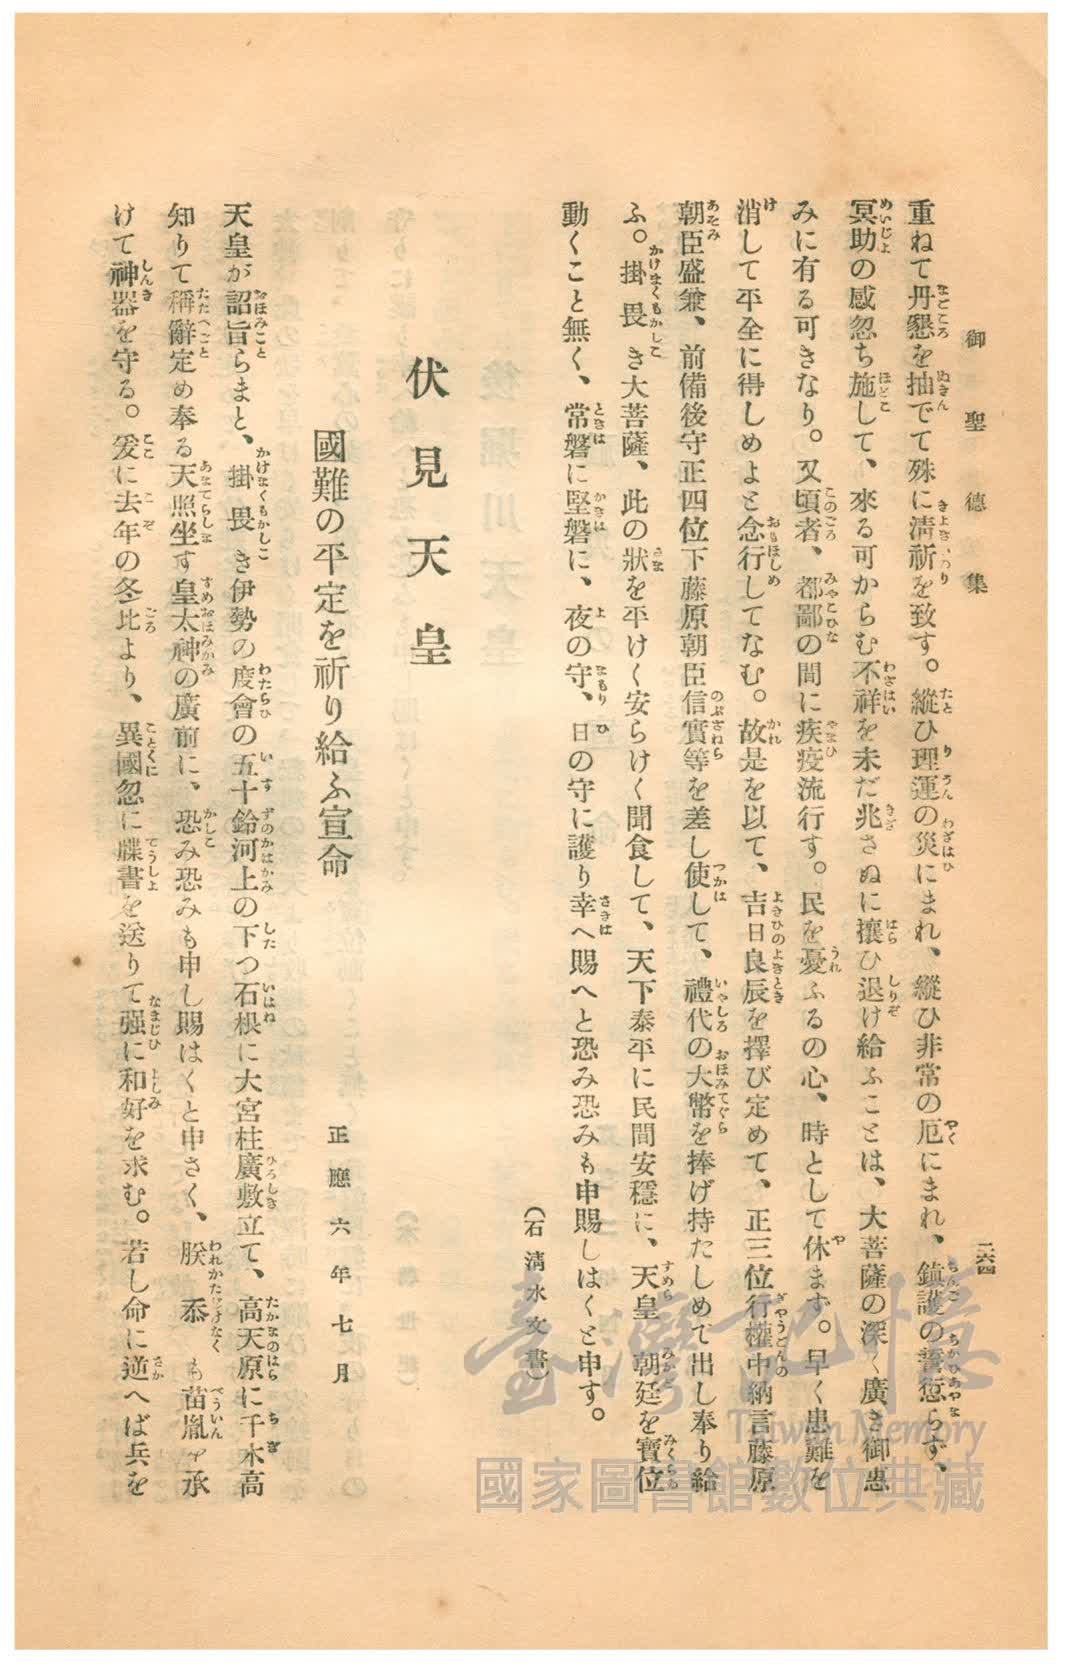 御聖德集
二六四
重ねて丹懇を抽でて殊に淸祈を致す。縱ひ理運の災にまれ、縱ひ非常の厄にまれ、鎭護の誓愆らず、
冥助の感忽ち施して、來る可からむ不祥を未だ兆さぬに攘ひ退け給ふことは、大菩薩の深く廣き御惠
みに有る可きなり。又頃者、都鄙の間に疾疫流行す。民を憂ふるの心、時として休まず。早く患難を
消して平全に得しめよと念行してなむ。故是を以て、吉日良辰を擇び定めて、正三位行權中納言藤原
朝臣盛兼、前備後守正四位下藤原朝臣信實等を差し使して、禮代の大幣を捧げ持たしめて出し奉り給
ふ。掛畏き大菩薩、此の狀を平けく安らけく聞食して、天下泰平に民間安穩に、天皇朝廷を寶位
動くこと無く、常磐に堅磐に、夜の守、日の守に護り幸へ賜へと恐み恐みも申賜しはくと申す。
（石淸水文書）
伏見天皇
國難の平定を祈り給ふ宣命
正應六年七月
天皇が詔旨らまと、掛畏き伊勢の度會の五十鈴河上の下つ石根に大宮柱廣敷立て、高天原に千木高
知りて稱辭定め奉る天照坐す皇太神の廣前に、恐み恐みも申し賜はくと申さく、朕忝も苗胤を承
けて神器を守る。爰に去年の冬比より、異國忽に牒書を送りて强に和好を求む。若し命に逆へば兵を
臺灣記憶
Taiwan Memory
國家圖書館數位典藏